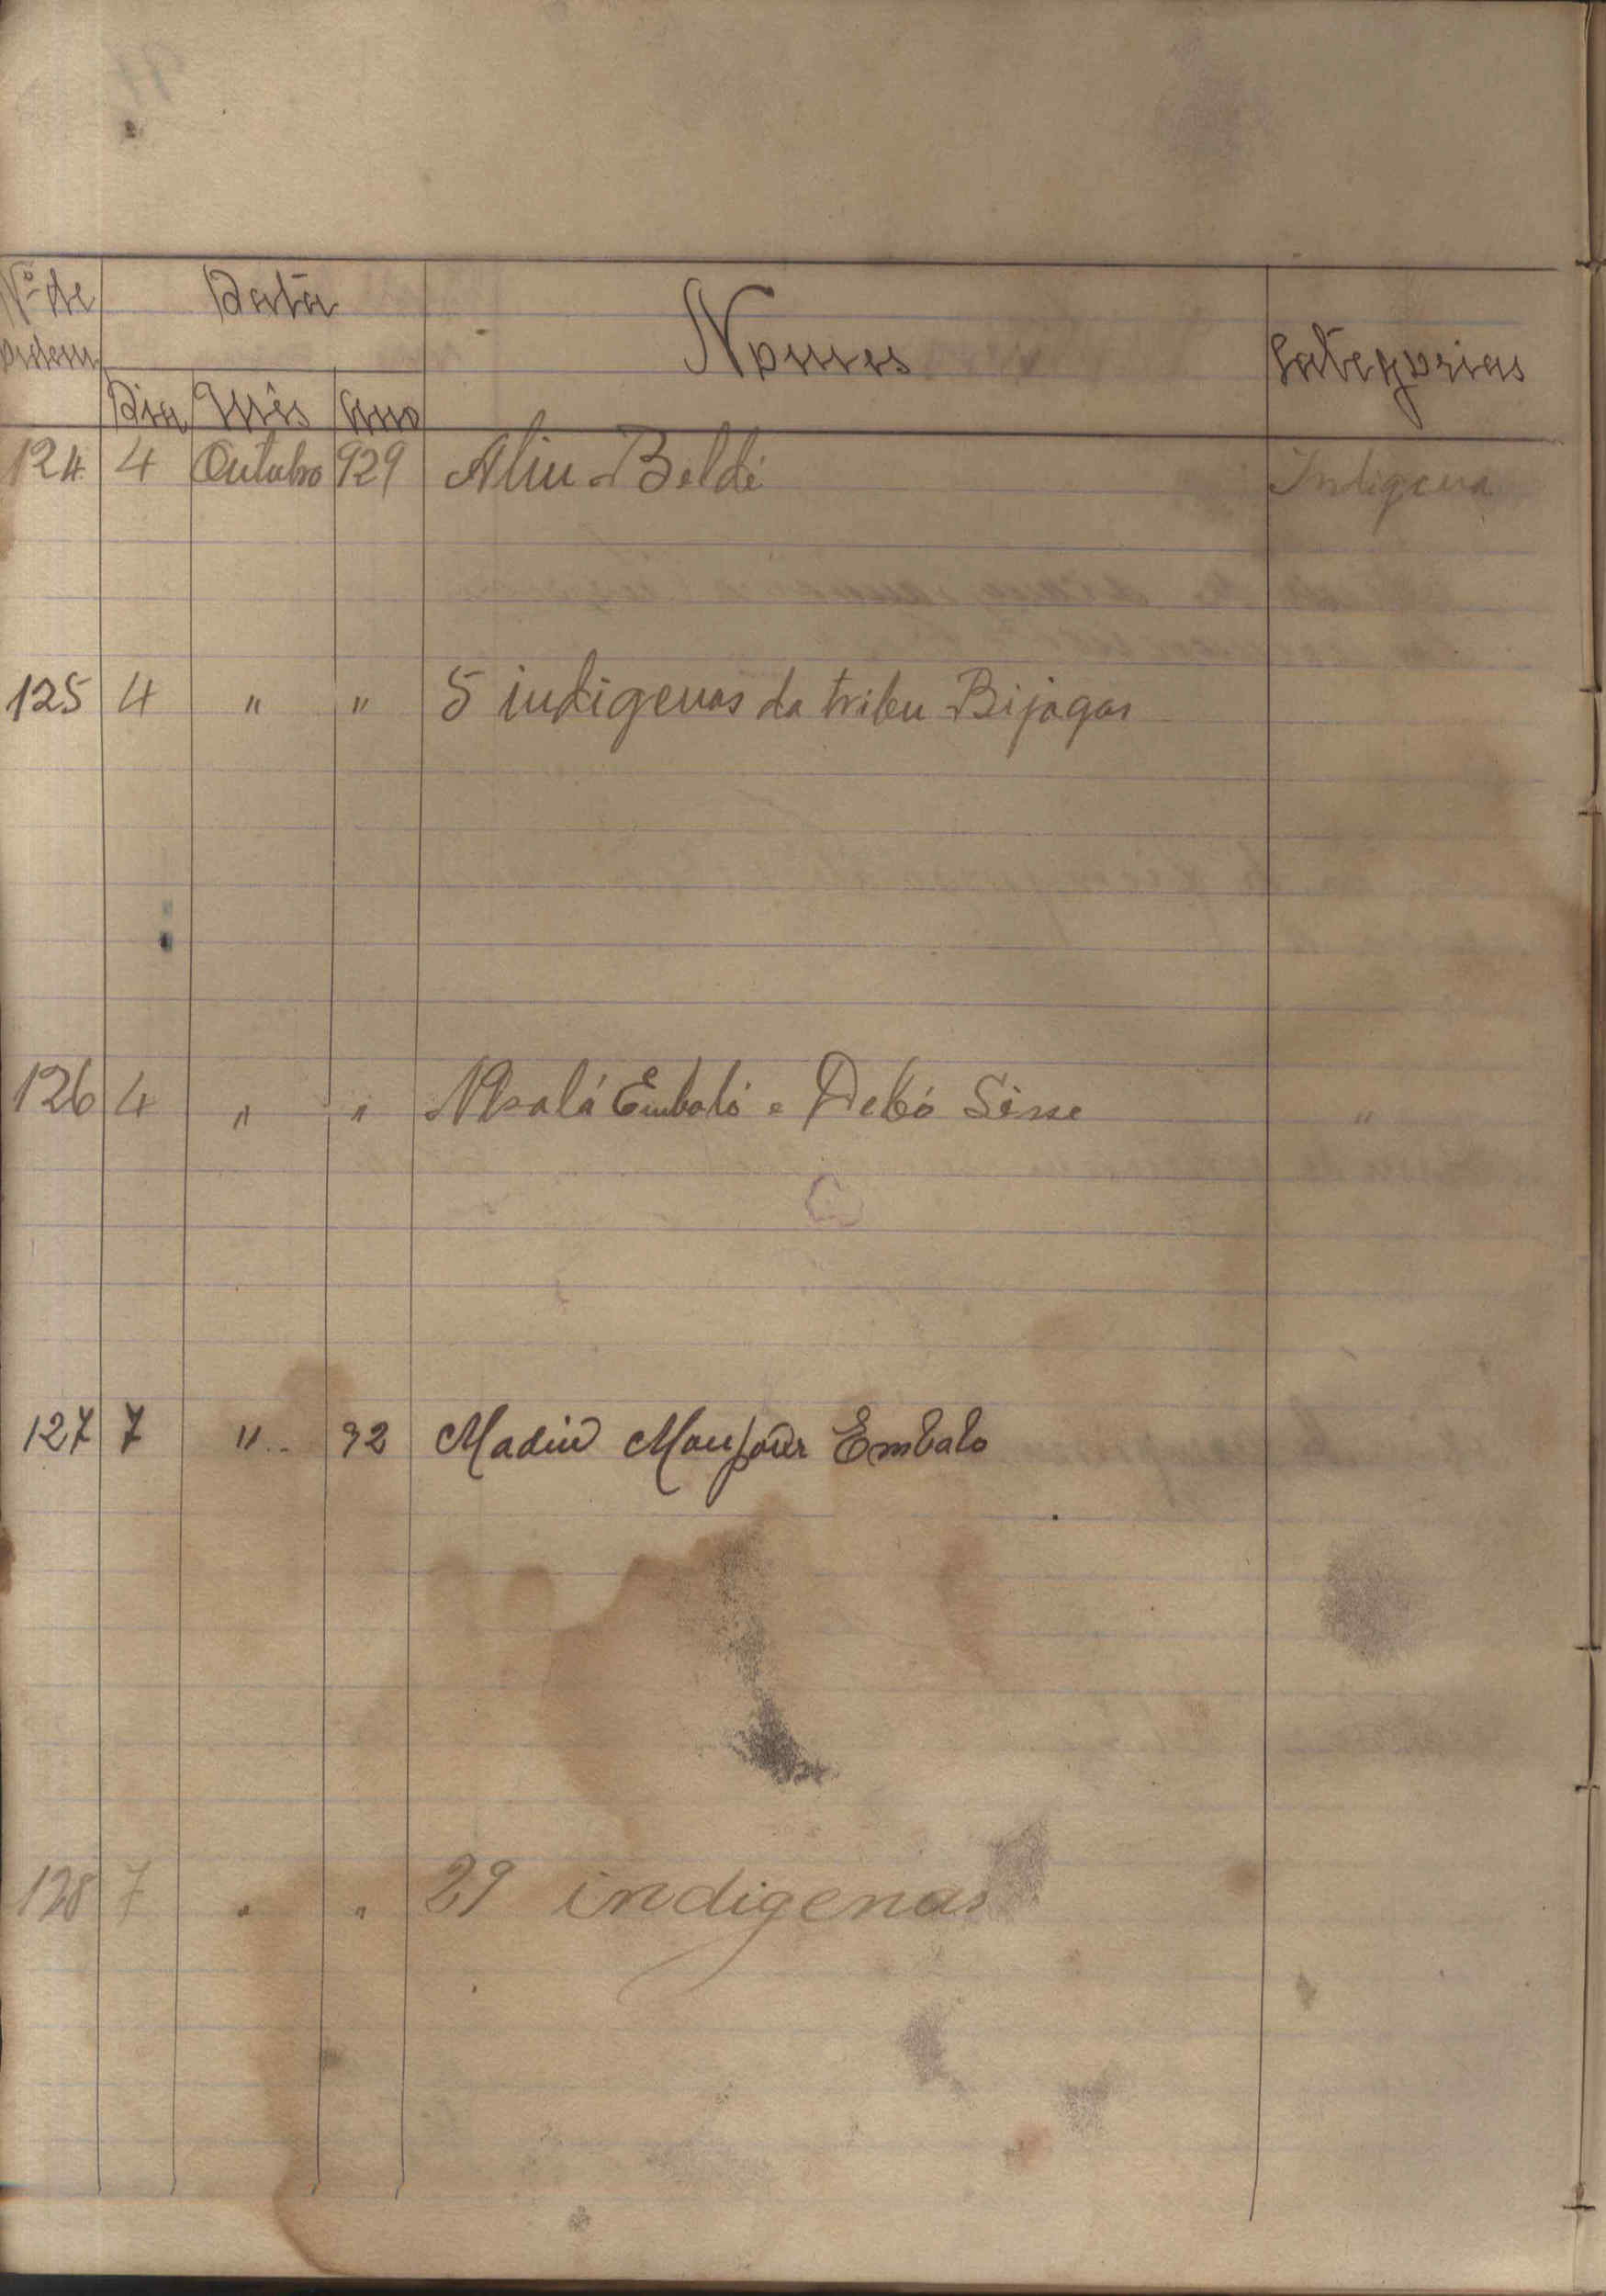 Nº de Data Nomes Categorias
ordem
Dia Mês Ano
124 4 Outubro 929 Aliu Beldé Indigena
125 4 " " 5 indigenas da tribu Bijagos
126 4 " " Embaló e Debó Sisse "
127 7 " Embalo
128 7 " " 29 indigenas